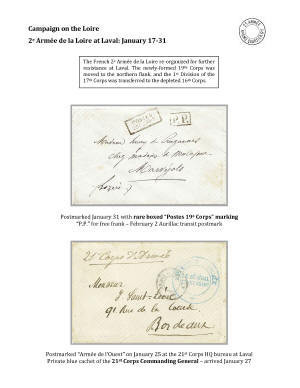 Campaign on the Loire
2e Armée de la Loire at Laval: January 17-31
The French 2e Armée de la Loire re-organized for further
resistance at Laval. The newly-formed 19th Corps was
moved to the northern flank, and the 1st Division of the
17th Corps was transferred to the depleted 16th Corps.
P.P.
Madame
chez madame de
Marvejols
Postmarked January 31 with rare boxed "Postes 19e Corps" marking
"P.P." for free frank – February 2 Aurillac transit postmark
21e Corps d'Armée
Monsieur
J. Saint-Léon
91 Rue de la Course
Bordeaux
Postmarked "Armée de l'Ouest" on January 25 at the 21st Corps HQ bureau at Laval
Private blue cachet of the 21st Corps Commanding General – arrived January 27